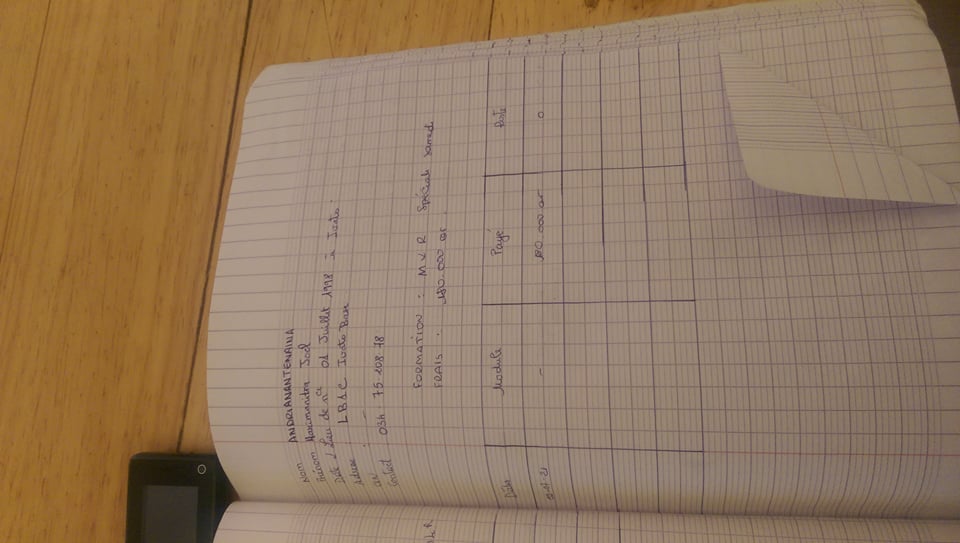 Nom ANDRIANANTENAINA
Prénom Harimanitra Joel
Date & Lieu de n^ce 01 Juillet 1998 à
Adresse : LB1C
CIN : -
Contact 034 75.108.18
FORMATION : M V R Spécial samedi
FRAIS : 180.000 ar.
Date Module Payé Reste
- 180.000 ar 0